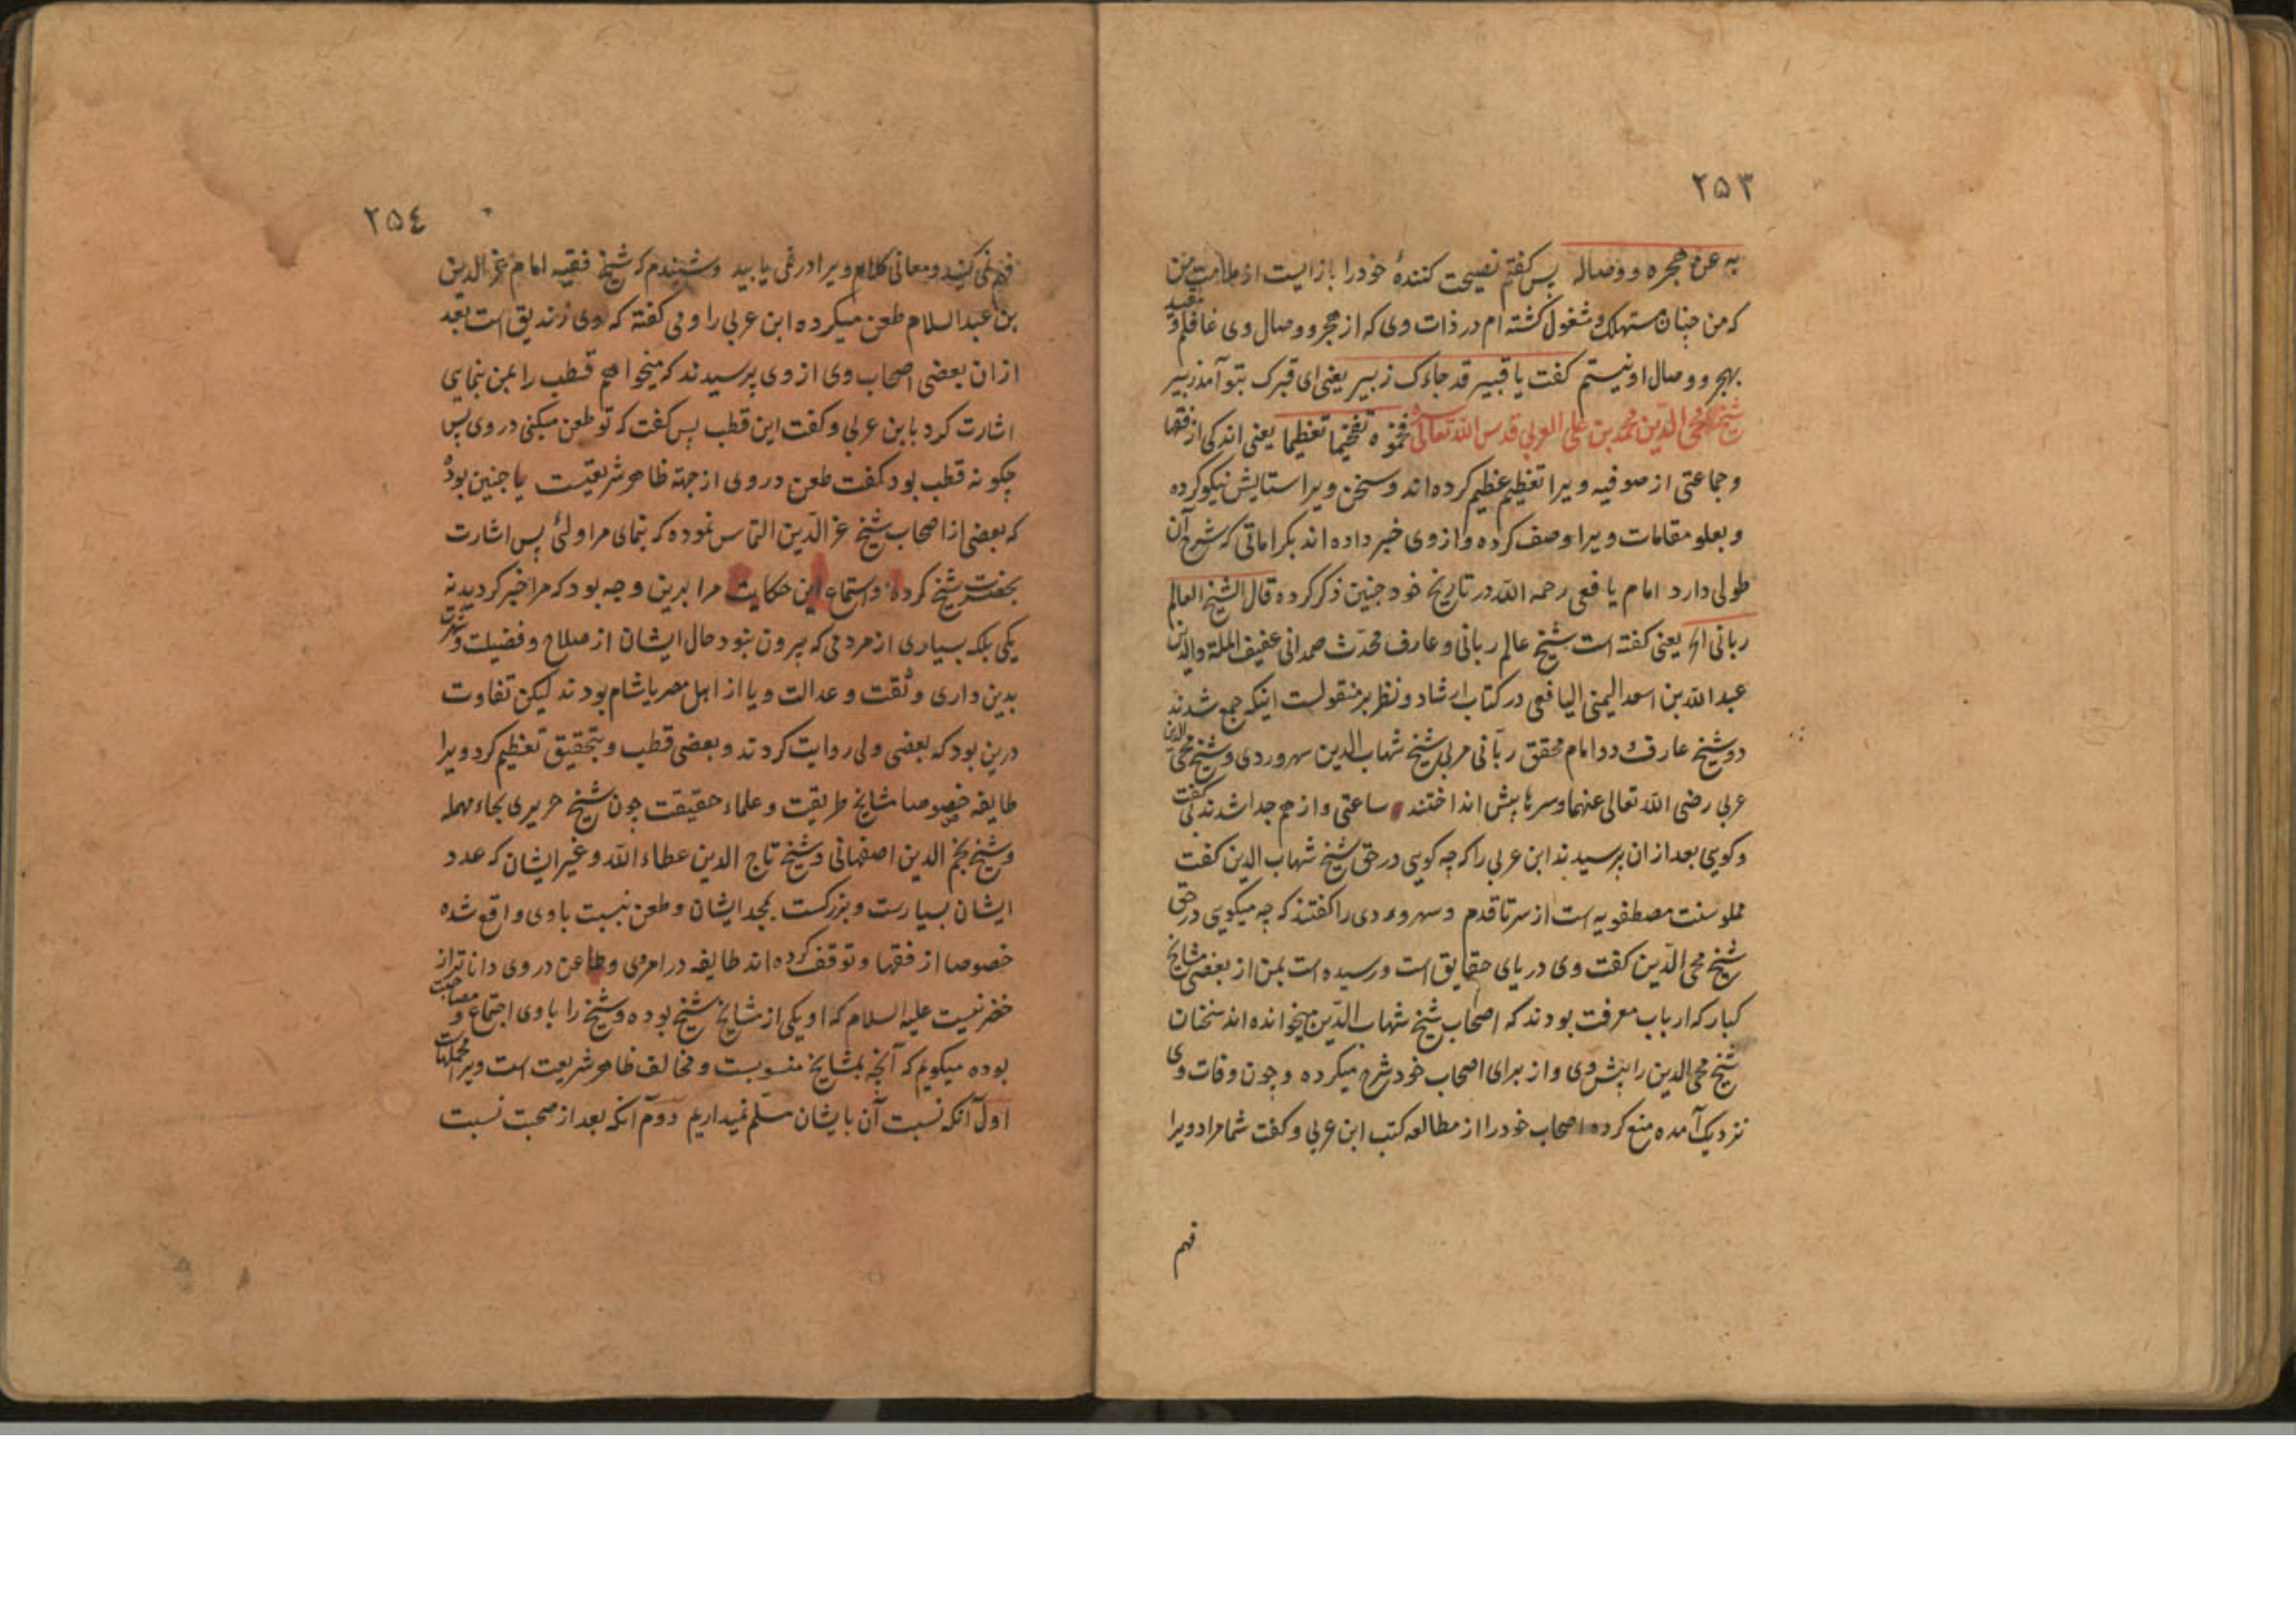 ۲۵۳
به عن هجره و وصاله پس گفتم نصیحت کنندهٔ خود را باز ایست از ملامت من
که من چنان مستهلک و مشغول کشته ام در ذات وی که از هجر و وصال وی غافلم و مقید
بهجر و وصال او نیستم کفت یا قبیر قد جاءک زبیر یعنی ای قبرک بتو آمد زبیر
شیخ محی الدین محمد بن علی العربی قدس الله تعالی سره فخموه تفخیما تعظیما یعنی اندکی از فقها
و جماعتی از صوفیه ویرا تعظیم عظیم کرده اند و سخن ویرا ستایش نیکو کرده
و بعلو مقامات ویرا وصف کرده و از وی خبر داده اند بکراماتی که شرح آن
طولی دارد امام یافعی رحمه الله در تاریخ خود چنین ذکر کرده قال الشیخ العالم
ربانی الخ یعنی کفته است شیخ عالم ربانی و عارف محدث صمدانی عفیف الملة والدین
عبدالله بن اسعد الیمنی الیافعی در کتاب ارشاد و نظر بر منقولست اینکه جمع شدند
دو شیخ عارف و دو امام محقق ربانی مربی شیخ شهاب الدین سهروردی و شیخ محی الدین
عربی رضی الله تعالی عنهما و سرها پیش انداختند ساعتی و از هم جدا شدند بی کفت
و کوی بعد از ان پرسیدند ابن عربی را که چه کویی در حق شیخ شهاب الدین کفت
مملو سنت مصطفویه است از سر تا قدم و سهروردی را کفتند که چه میکویی در حق
شیخ محی الدین کفت وی دریای حقایق است و رسیده است بمن از بعضی مشایخ
کبار که ارباب معرفت بودند که اصحاب شیخ شهاب الدین میخوانده اند سخنان
شیخ محی الدین را پیش وی و از برای اصحاب خود شرح میکرده و چون وفات وی
نزدیک آمده منع کرده اصحاب خود را از مطالعه کتب ابن عربی و کفت شما مراد ویرا
فهم
۲۵٤
فهم نمی کنید و معانی کلام ویرا در نمی یابید و شنیدم که شیخ فقیه امام عز الدین
بن عبد السلام طعن میکرده ابن عربی را و می کفته که وی زندیق است بعد
از ان بعضی اصحاب وی از وی پرسیدند که میخواهم قطب را بمن بنمایی
اشارت کرد بابن عربی و کفت این قطب پس کفت که تو طعن میکنی در وی پس
چکونه قطب بود کفت طعن در وی از جهة ظاهر شریعتست یا چنین بوده
که بعضی از اصحاب شیخ عز الدین التماس نموده که بنمای مرا ولیّ پس اشارت
بحضرت شیخ کرده و استماع این حکایت مرا برین وجه بود که مرا خبر کردید نه
یکی بلکه بسیاری از مردمی که بیرون بنود حال ایشان از صلاح و فضیلت و شهرت
بدین داری و ثقت و عدالت و یا از اهل مصر یا شام بودند لیکن تفاوت
درین بود که بعضی ولی روایت کردند و بعضی قطب و بتحقیق تعظیم کرد ویرا
طایفه خصوصا مشایخ طریقت و علماء حقیقت چون شیخ حریری بحاء مهمله
و شیخ نجم الدین اصفهانی و شیخ تاج الدین عطاء الله و غیر ایشان که عدد
ایشان بسیارست و بزرکست مجد ایشان و طعن نسبت باوی واقع شده
خصوصا از فقها و توقف کرده اند طایفه در امر وی و طاعن در وی داناتر از
خضر نیست علیه السلام که او یکی از مشایخ شیخ بوده و شیخ را با وی اجتماع و مصاحبت
بوده میکویم که آنچه بمشایخ منسوبست و مخالف ظاهر شریعت است ویرا محملهاست
اول آنکه نسبت آن بایشان مسلم نمیداریم دوم آنکه بعد از صحبت نسبت